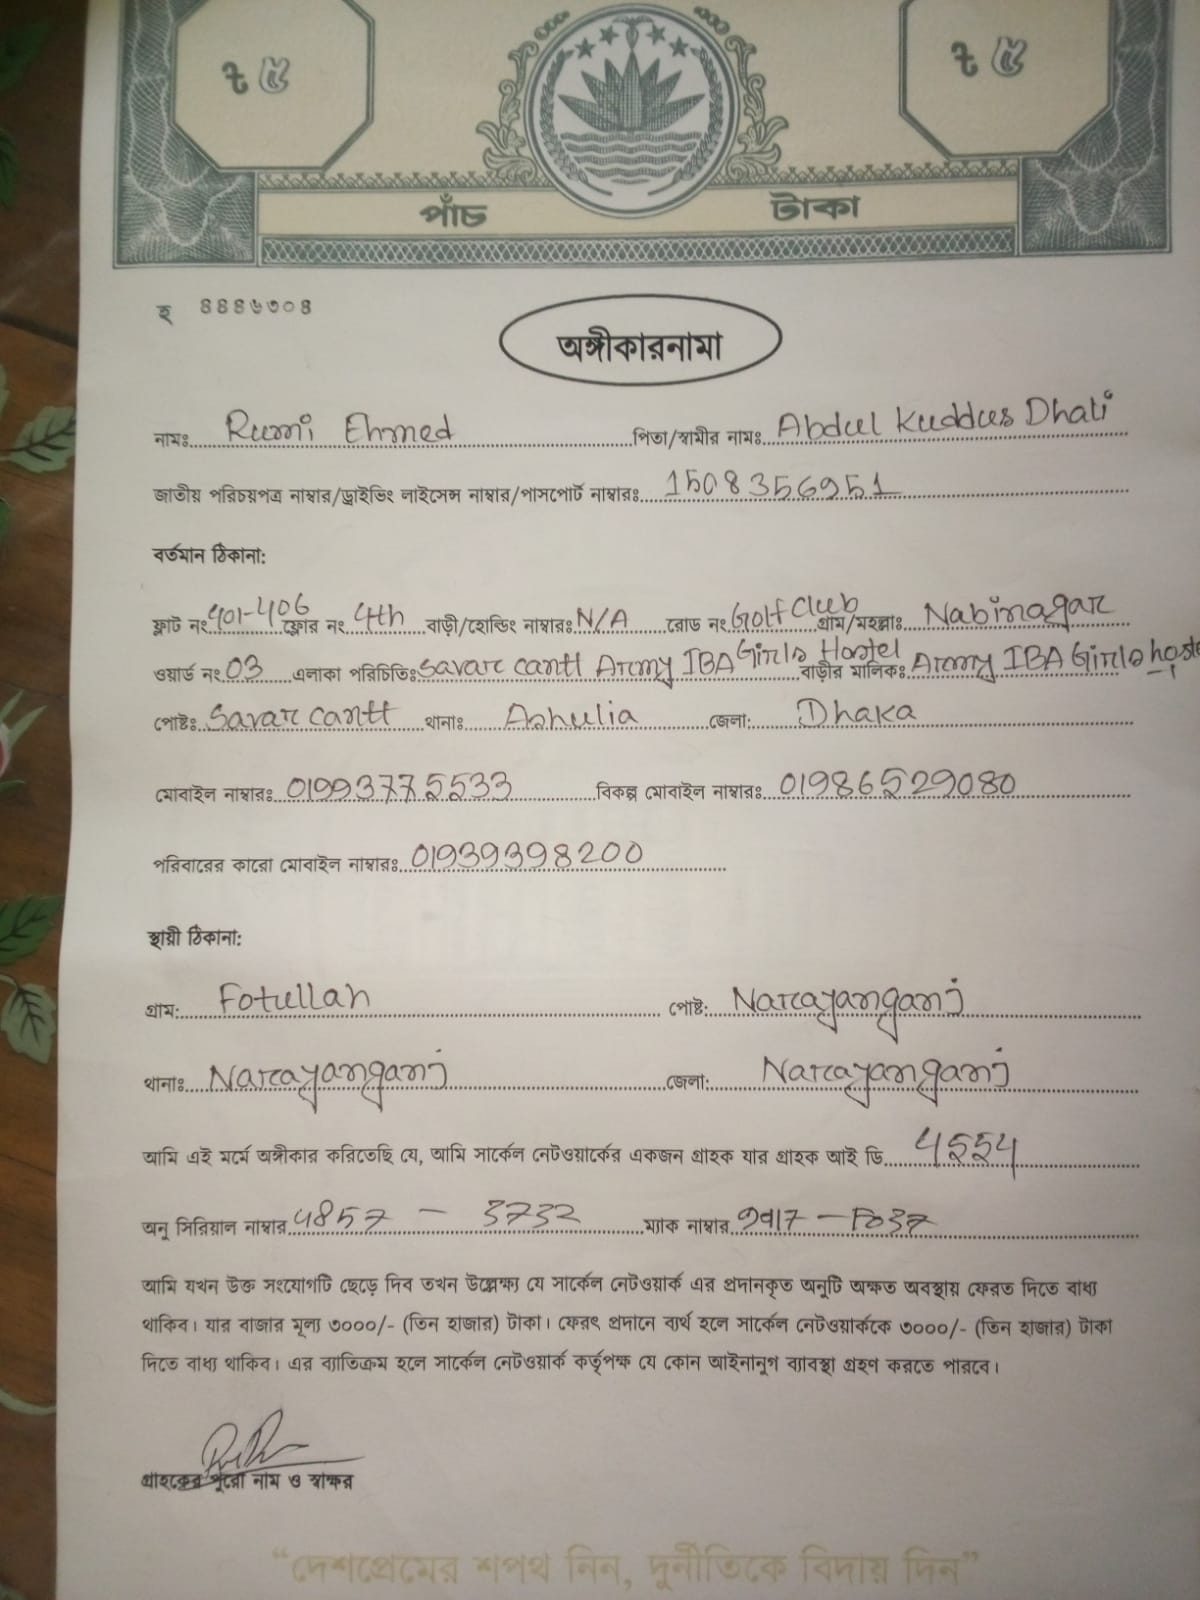 ৳ ৫ ৳ ৫
পাঁচ টাকা
হ ৪৪৪৬৩০৪
অঙ্গীকারনামা
নামঃ Rumi Ehmed পিতা/স্বামীর নামঃ Abdul Kuddus Dhali
জাতীয় পরিচয়পত্র নাম্বার/ড্রাইভিং লাইসেন্স নাম্বার/পাসপোর্ট নাম্বারঃ 1508356951
বর্তমান ঠিকানা:
ফ্লাট নং 401-406 ফ্লোর নং 4th বাড়ী/হোল্ডিং নাম্বারঃ N/A রোড নং Golf Club গ্রাম/মহল্লাঃ Nabinagar
ওয়ার্ড নং 03 এলাকা পরিচিতিঃ Savar cantt Army IBA Girls Hostel বাড়ীর মালিকঃ Army IBA Girls hostel
পোষ্টঃ Savar cantt থানাঃ Ashulia জেলা: Dhaka
মোবাইল নাম্বারঃ 01993775533 বিকল্প মোবাইল নাম্বারঃ 01986529080
পরিবারের কারো মোবাইল নাম্বারঃ 01939398200
স্থায়ী ঠিকানা:
গ্রাম: Fotullah পোষ্ট: Narayanganj
থানাঃ Narayanganj জেলা: Narayanganj
আমি এই মর্মে অঙ্গীকার করিতেছি যে, আমি সার্কেল নেটওয়ার্কের একজন গ্রাহক যার গ্রাহক আই ডি 4554
অনু সিরিয়াল নাম্বার 4857 - 3732 ম্যাক নাম্বার - F037
আমি যখন উক্ত সংযোগটি ছেড়ে দিব তখন উল্লেক্ষ্য যে সার্কেল নেটওয়ার্ক এর প্রদানকৃত অনুটি অক্ষত অবস্থায় ফেরত দিতে বাধ্য
থাকিব। যার বাজার মূল্য ৩০০০/- (তিন হাজার) টাকা। ফেরৎ প্রদানে ব্যর্থ হলে সার্কেল নেটওয়ার্ককে ৩০০০/- (তিন হাজার) টাকা
দিতে বাধ্য থাকিব। এর ব্যাতিক্রম হলে সার্কেল নেটওয়ার্ক কর্তৃপক্ষ যে কোন আইনানুগ ব্যাবস্থা গ্রহণ করতে পারবে।
গ্রাহকের পুরো নাম ও স্বাক্ষর
“দেশপ্রেমের শপথ নিন, দুর্নীতিকে বিদায় দিন”